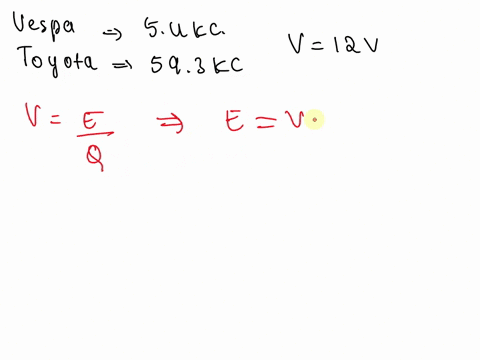 Vespa ⇒ 5.4 kC.
Toyota ⇒ 59.3 KC
V = 12 V
V = E/Q ⇒ E = V